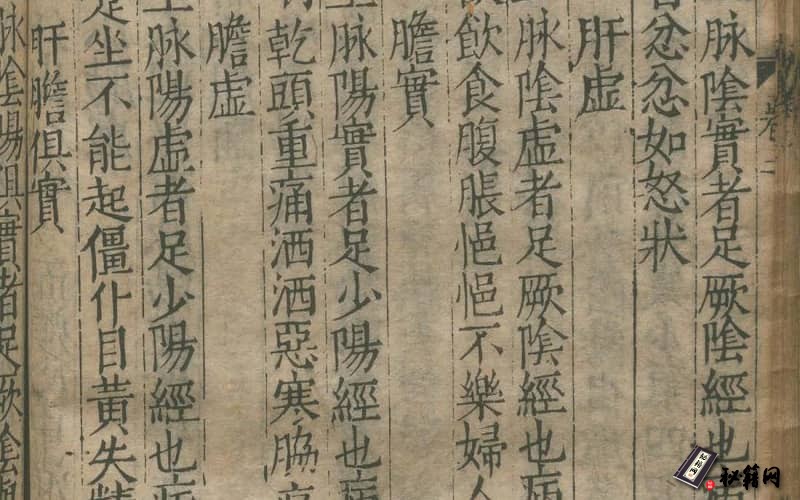 卷二
上脉陰實者足厥陰經也
者忿忿如怒狀
肝虛
上脉陰虛者足厥陰經也病
飲食腹脹悒悒不樂婦人
膽實
上脉陽實者足少陽經也病
乾頭重痛洒洒惡寒脇
膽虛
上脉陽虛者足少陽經也病
足坐不能起僵仆目黃失精
肝膽俱實
脉陰陽俱實者足厥陰
秘籍网